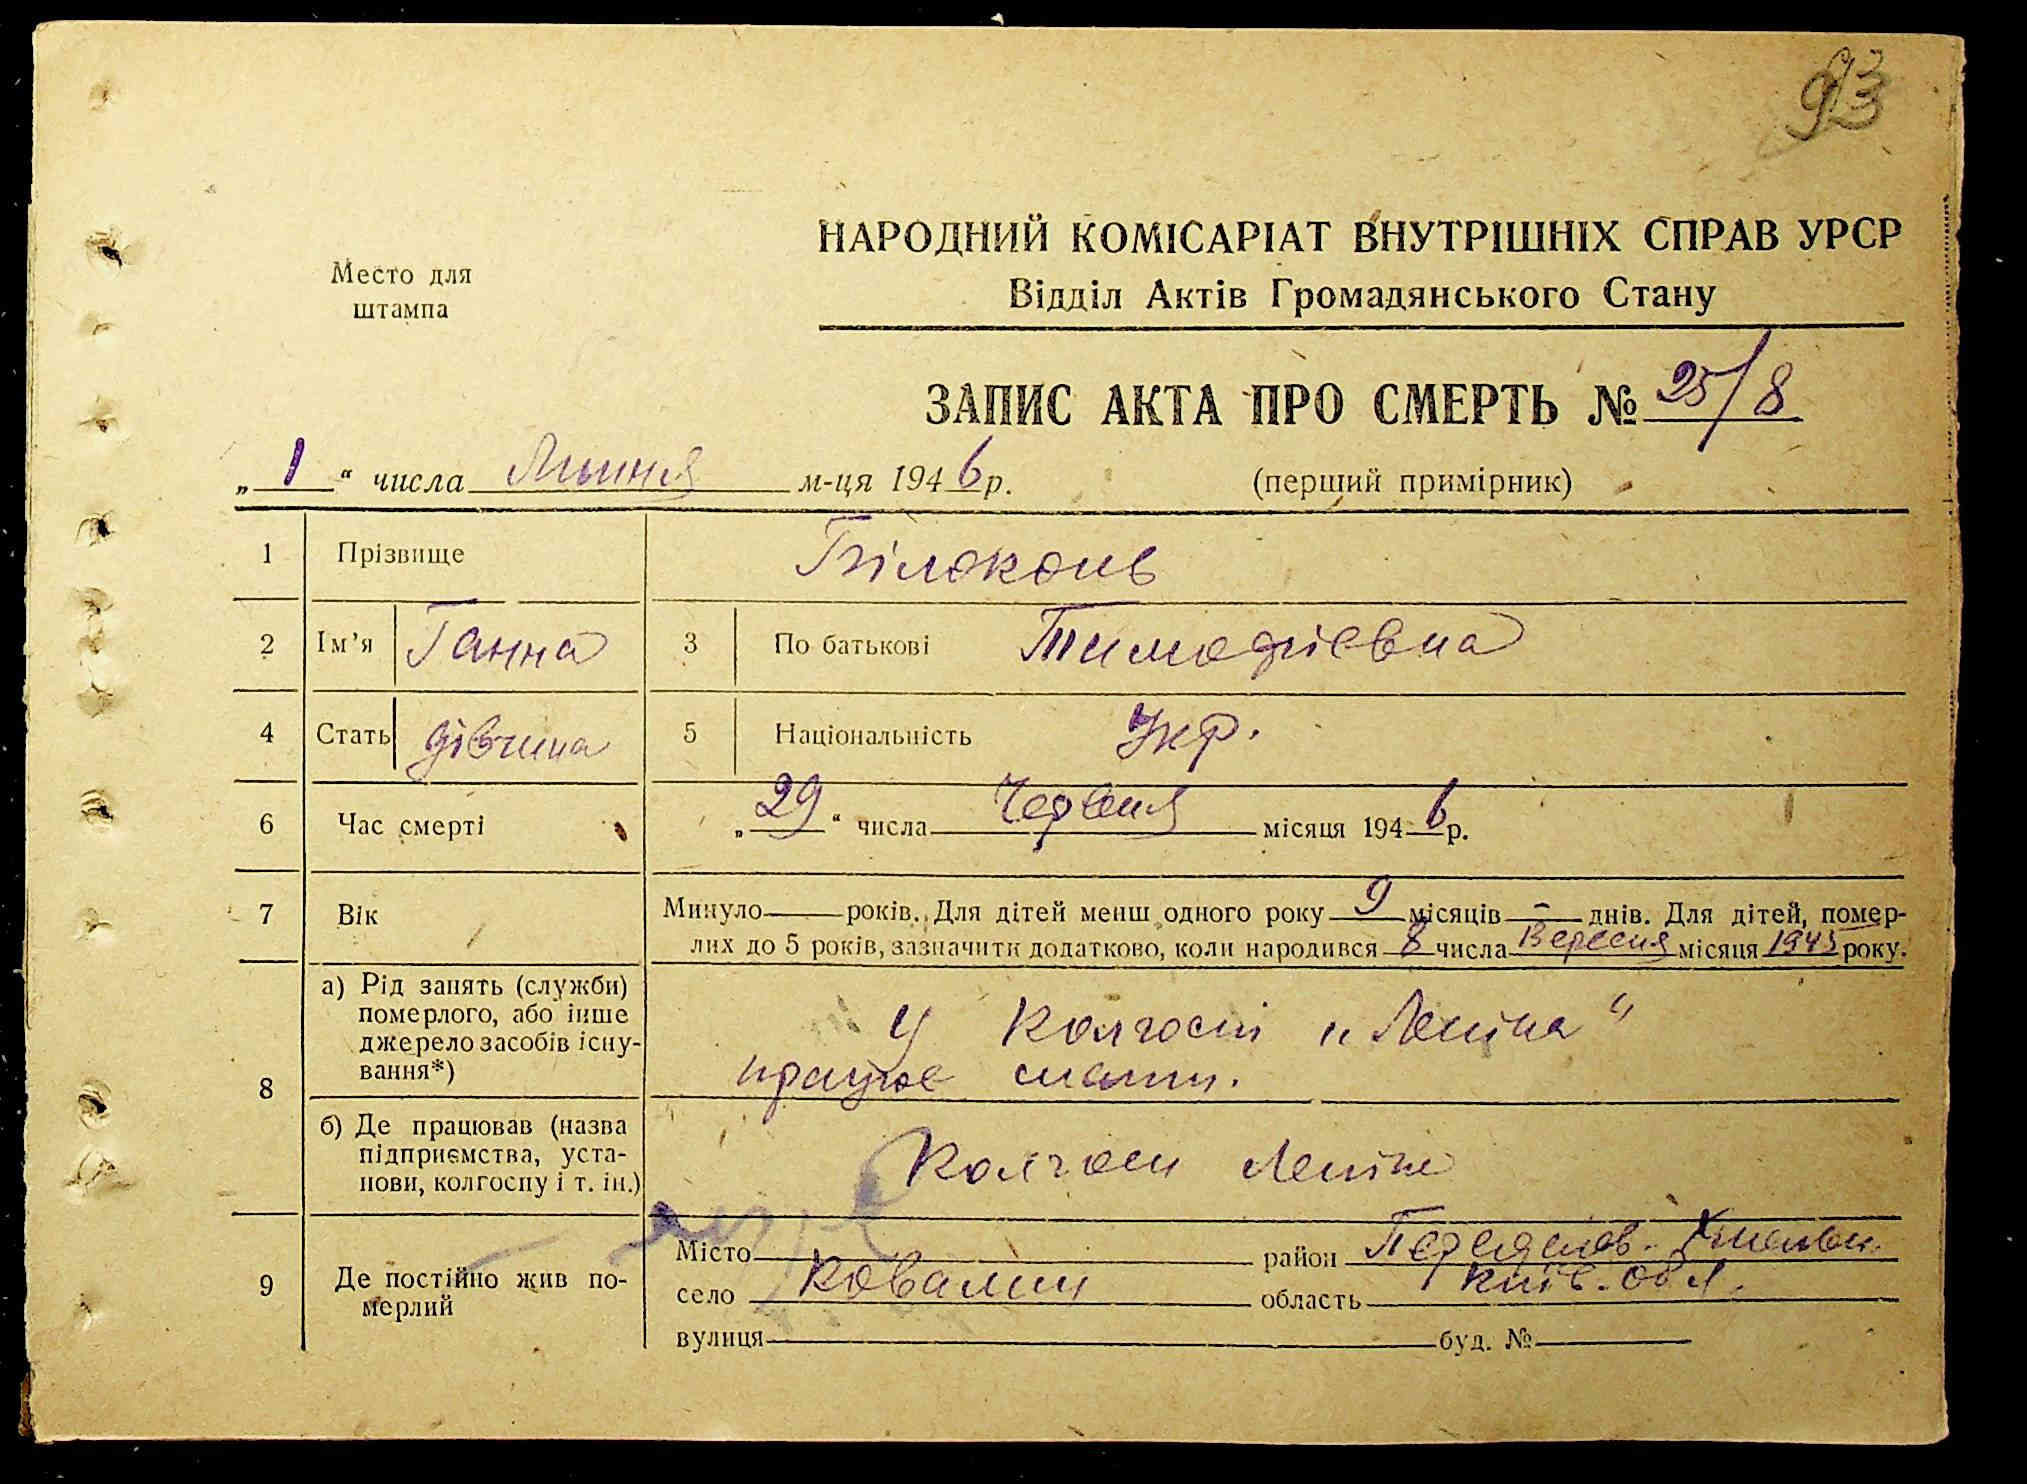 93
Место для
штампа
НАРОДНИЙ КОМІСАРІАТ ВНУТРІШНІХ СПРАВ УРСР
Відділ Актів Громадянського Стану
ЗАПИС АКТА ПРО СМЕРТЬ № 25/8
„ 1 “ числа Липня м-ця 1946 р. (перший примірник)
1 Прізвище Білоконь
2 Ім’я Ганна 3 По батькові Тимофієвна
4 Стать дівчина 5 Національність Укр.
6 Час смерті „ 29 “ числа Червня місяця 1946 р.
7 Вік Минуло — років. Для дітей менш одного року 9 місяців - днів. Для дітей, помер-
лих до 5 років, зазначити додатково, коли народився 8 числа Вересня місяця 1945 року.
8 а) Рід занять (служби)
померлого, або інше
джерело засобів існу-
вання*)
У Колгоспі „Леніна“
працює мати.
б) Де працював (назва
підприємства, уста-
нови, колгоспу і т. ін.)
Колгосп Леніна
9 Де постійно жив по-
мерлий
Місто район Переяслов. Хмельн.
село Ковалин область Київ. обл.
вулиця буд. №